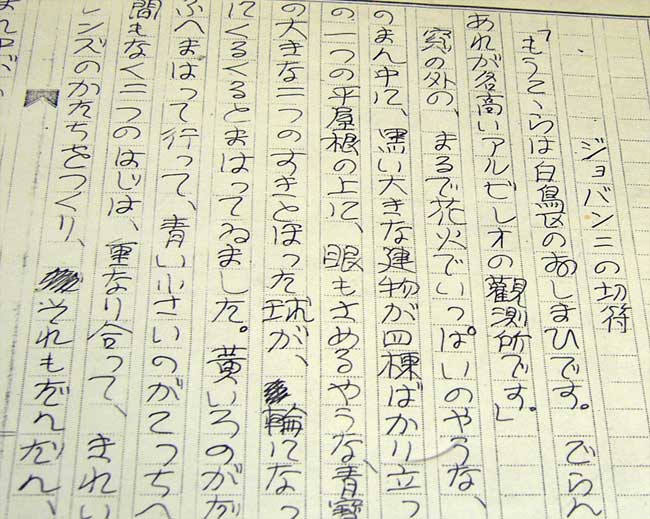 ジョバンニの切符
「もうこゝらは白鳥区のおしまひです。ごらん
あれが名高いアルビレオの観測所です。」
窓の外の、まるで花火でいっぱいのやうな、
のまん中に、黒い大きな建物が四棟ばかり立っ
の一つの平屋根の上に、眼もさめるやうな、青寶
の大きな二つのすきとほった球が、輪になっ
にくるくるとまはってゐました。黄いろのがだ
ふへまはって行って、青い小さいのがこっちへ
間もなく二つのはじは、重なり合って、きれい
レンズのかたちをつくり、それもだんだん、